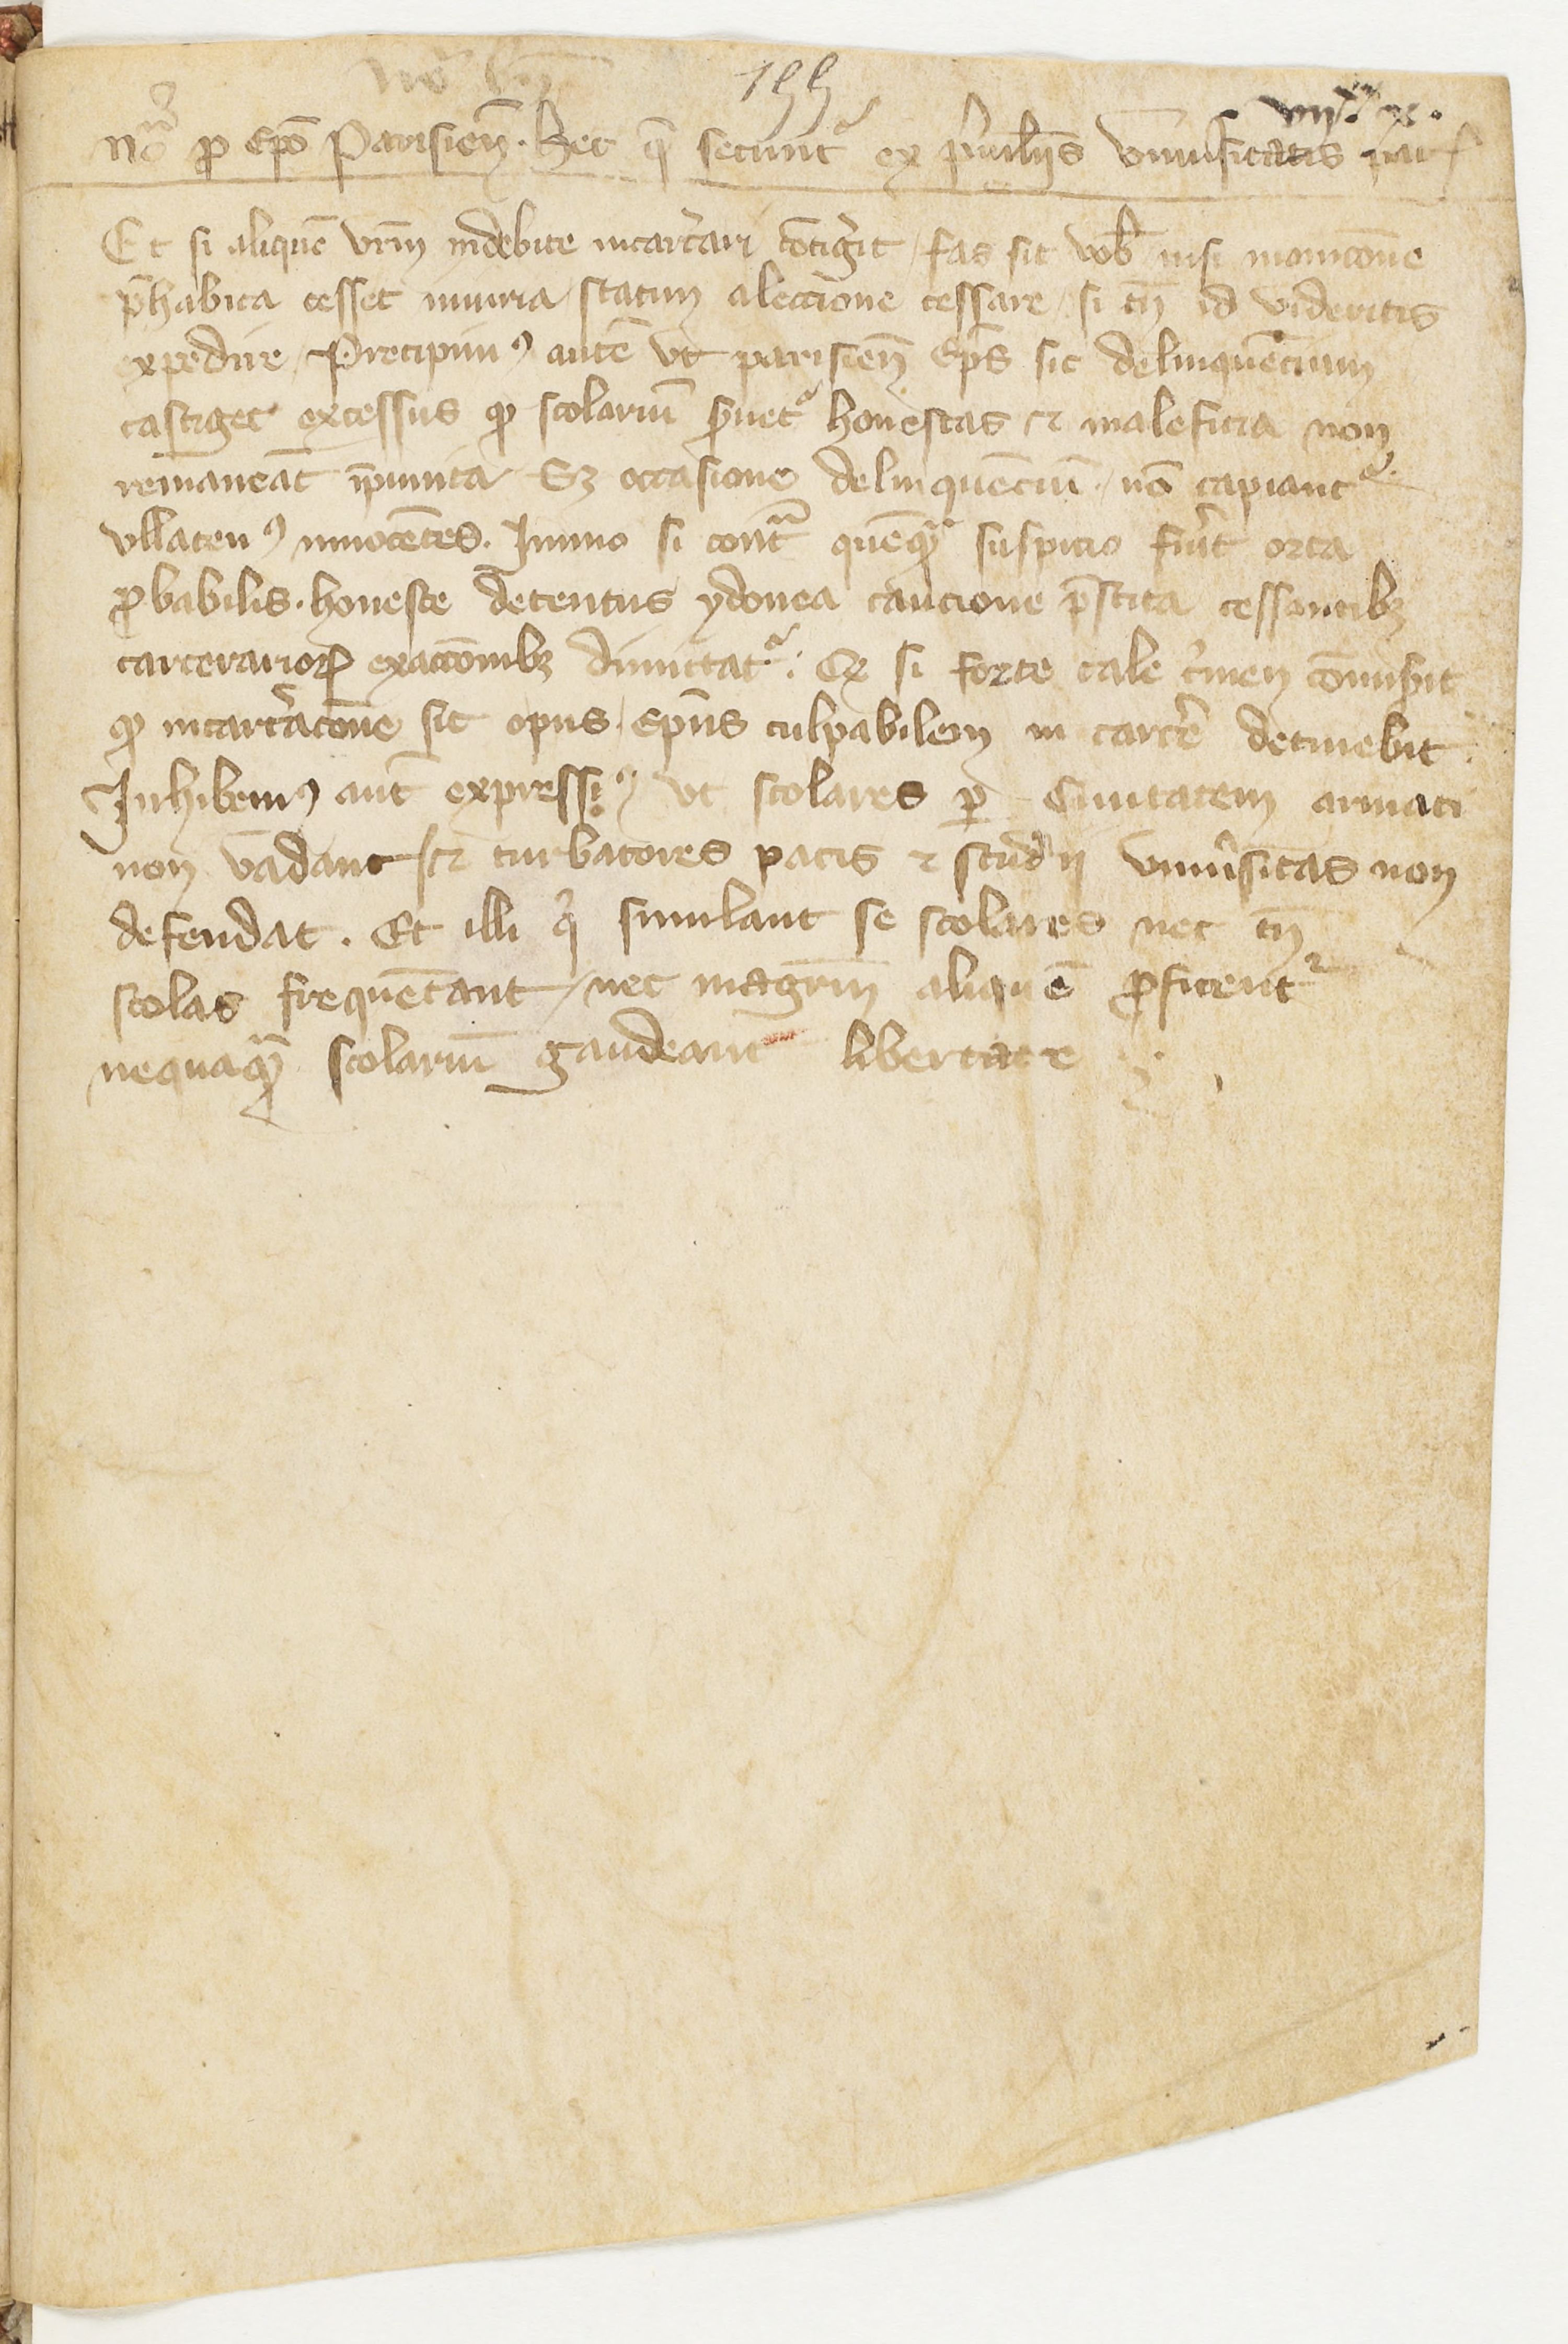 155
viixx x.
Nota pro Epo Parisien̄. Hec q̄ secunt᷑ ex p̉uilegiis Vniuersitatis par̄
Et si aliquē vr̄m indebite incarc̉ari cōtig̉it / fas sit vob̄ nisi monicōne
p̄habita cesset iniuria / statim a leccione cessare / si tn̄ id videritis
expedire / Precipimꝰ autē vt parisien̄ Ep̄s sic delinquēcium
castiget excessus ꝙ scolariū ẜuet᷑ honestas ⁊ maleficia non
remaneāt īpunita / Sꝫ occasione delinquēciū / nō capiant᷑
vllatenꝰ innocētes. Immo si contͣ quēqͣ suspicio fủit orta
ꝓbabilis. honeste detentus ydonea caucione p̄stita cessantibꝫ
carcerarioꝝ exaccōnibꝫ dimittat᷑. Qꝫ si forte tale c̉men cōmis̉it
ꝙ incarc̉acōne sit opus / Ep̄us culpabilem in carc̉e detinebit.
Inhibemꝰ aut̄ expressiꝰ / vt scolares ꝑ Ciuitatem armati
non vadant / ⁊ turbatores pacis ⁊ studii vniủsitas non
defendat. Et illi qͥ simulant se scolares nec tn̄
scolas frequētant / nec magr̄m aliquē ꝓfitent᷑
nequaqͣ scolariū gaudeant libertate